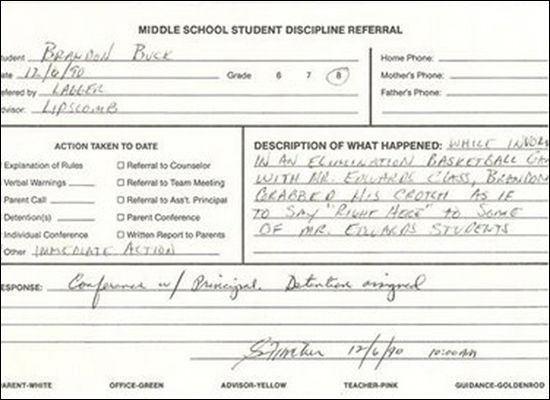 MIDDLE SCHOOL STUDENT DISCIPLINE REFERRAL
tudent BRANDON BUCK
ate 12/6/90 Grade 6 7 8
eferred by LAGGER
dvisor: LIPSCOMB
Home Phone:
Mother's Phone:
Father's Phone:
ACTION TAKEN TO DATE
Explanation of Rules ☐ Referral to Counselor
Verbal Warnings ☐ Referral to Team Meeting
Parent Call ☐ Referral to Ass't. Principal
Detention(s) ☐ Parent Conference
Individual Conference ☐ Written Report to Parents
Other IMMEDIATE ACTION
DESCRIPTION OF WHAT HAPPENED: WHILE INVOLV
IN AN ELIMINATION BASKETBALL GA
WITH MR. EDWARDS CLASS, BRANDON
GRABBED HIS CROTCH AS IF
TO SAY "RIGHT HERE" TO SOME
OF MR. EDWARDS STUDENTS
ESPONSE: Conference w/ Principal. Detention assigned
12/6/90 10:00AM
ARENT-WHITE OFFICE-GREEN ADVISOR-YELLOW TEACHER-PINK GUIDANCE-GOLDENROD